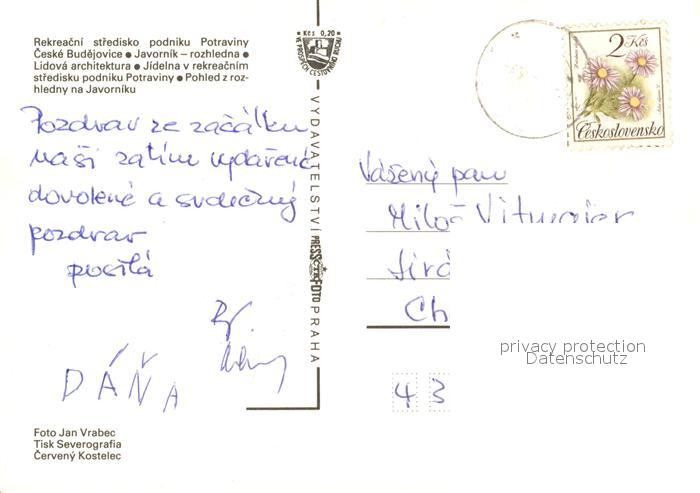 Rekreační středisko podniku Potraviny
České Budějovice ● Javorník – rozhledna ●
Lidová architektura ● Jídelna v rekreačním
středisku podniku Potraviny ● Pohled z roz-
hledny na Javorníku
Pozdrav ze začátku
naší zatím vydařené
dovolené a srdečný
pozdrav
posílá
DÁŇA
Foto Jan Vrabec
Tisk Severografia
Červený Kostelec
● Kčs 0,20 ●
VE PROSPĚCH CESTOVNÍHO RUCHU
VYDAVATELSTVÍ PRESSFOTO PRAHA
ČTK
2 Kčs
Československo
Vážený pan
Miloš
Ch
privacy protection
Datenschutz
4 3